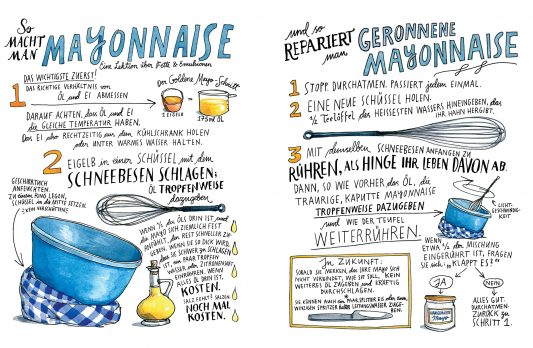 So
MACHT
MAN
MAYONNAISE
Eine Lektion über Fette & Emulsionen
DAS WICHTIGSTE ZUERST!
1 DAS RICHTIGE VERHÄLTNIS VON
ÖL UND EI ABMESSEN
Der Goldene Mayo-Schnitt
1 EIGELB
175ml ÖL
DARAUF ACHTEN, dass ÖL UND EI
die GLEICHE TEMPERATUR HABEN.
Das EI also RECHTZEITIG aus dem KÜHLSCHRANK HOLEN
oder UNTER WARMES WASSER HALTEN.
2 EIGELB in einer SCHÜSSEL mit dem
SCHNEEBESEN SCHLAGEN;
ÖL TROPFENWEISE
dazugeben
GESCHIRRTUCH
ANFEUCHTEN,
zu einem RING LEGEN,
SCHÜSSEL in die MITTE SETZEN
KEIN VERRUTSCHEN!
WENN 1/3 des ÖLS DRIN IST, und
die MAYO SICH ZIEMLICH FEST
ANFÜHLT, den REST SCHNELLER ZU-
GEBEN. WENN SIE SO DICK WIRD,
dass SIE SCHWER zu SCHLAGEN
IST, ein PAAR TROPFEN
WASSER oder ZITRONENSAFT
EINRÜHREN. WENN
ALLES ÖL DRIN IST,
KOSTEN.
SALZ FEHLT? SALZEN.
NOCH MAL
KOSTEN.
und so
REPARIERT
man
GERONNENE
MAYONNAISE
1 STOPP. DURCHATMEN. PASSIERT jedem EINMAL.
2 EINE NEUE SCHÜSSEL HOLEN.
1/2 TEELÖFFEL des HEISSESTEN WASSERS HINEINGEBEN, das
IHR HAHN HERGIBT.
3 MIT demselben SCHNEEBESEN ANFANGEN ZU
RÜHREN, ALS HINGE IHR LEBEN DAVON AB.
DANN, SO WIE VORHER das ÖL, die
TRAURIGE, KAPUTTE MAYONNAISE
TROPFENWEISE DAZUGEBEN
und WIE DER TEUFEL
WEITERRÜHREN.
LICHT-
GESCHWINDIG-
KEIT
WENN
ETWA 1/3 der MISCHUNG
EINGERÜHRT IST, FRAGEN
SIE sich: „KLAPPT ES?“
JA
NEIN
ALLES GUT.
DURCHATMEN.
ZURÜCK zu
SCHRITT 1.
In ZUKUNFT:
SOBALD SIE MERKEN, dass IHRE MAYO SICH
NICHT VERBINDET, WIE SIE SOLL, KEIN
WEITERES ÖL ZUGEBEN und KRÄFTIG
DURCHSCHLAGEN*
* SIE KÖNNEN AUCH ein PAAR SPLITTER EIS oder einen
WINZIGEN SPRITZER kaltes LEITUNGSWASSER ZUGE-
BEN.